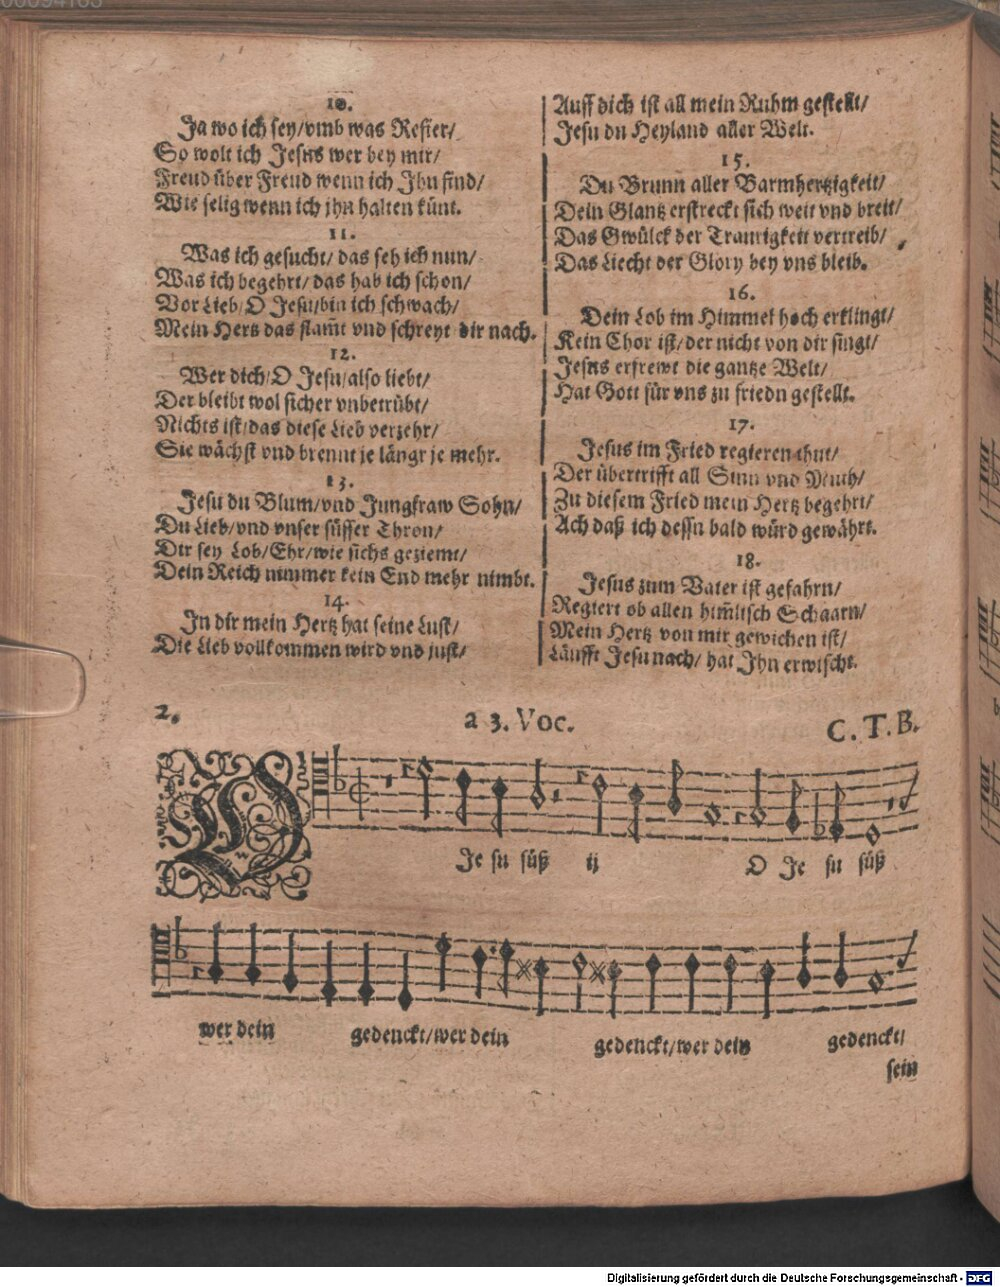 10.
Ja wo ich sey/vmb was Refier/
So wolt ich Jesus wer bey mir/
Freud über Freud wenn ich Ihn find/
Wie selig wenn ich ihn halten künt.
11.
Was ich gesucht/das seh ich nun/
Was ich begehrt/das hab ich schon/
Vor Lieb/O Jesu/bin ich schwach/
Mein Hertz das flam̃t vnd schreyt dir nach.
12.
Wer dich/O Jesu/also liebt/
Der bleibt wol sicher vnbetrübt/
Nichts ist/das diese Lieb verzehr/
Sie wächst vnd brennt je längr je mehr.
13.
Jesu du Blum/vnd Jungfraw Sohn/
Du Lieb/vnd vnser süsser Thron/
Dir sey Lob/Ehr/wie sichs geziemt/
Dein Reich nimmer kein End mehr nimbt.
14.
In dir mein Hertz hat seine Lust/
Die Lieb vollkommen wird vnd just/
Auff dich ist all mein Ruhm gestellt/
Jesu du Heyland aller Welt.
15.
Du Brunn aller Barmhertzigkeit/
Dein Glantz erstreckt sich weit vnd breit/
Das Gwülck der Traurigkeit vertreib/
Das Liecht der Glory bey vns bleib.
16.
Dein Lob im Himmel hoch erklingt/
Kein Chor ist/der nicht von dir singt/
Jesus erfrewt die gantze Welt/
Hat Gott für vns zu friedn gestellt.
17.
Jesus im Fried regieren thut/
Der übertrifft all Sinn vnd Muth/
Zu diesem Fried mein Hertz begehrt/
Ach daß ich dessn bald würd gewährt.
18.
Jesus zum Vater ist gefahrn/
Regiert ob allen him̃lisch Schaarn/
Mein Hertz von mir gewichen ist/
Läufft Jesu nach/hat Ihn erwischt.
2. a 3. Voc. C. T. B.
O Je su süß ij O Je su süß
wer dein gedenckt/wer dein gedenckt/wer dein gedenckt/
sein
Digitalisierung gefördert durch die Deutsche Forschungsgemeinschaft - DFG